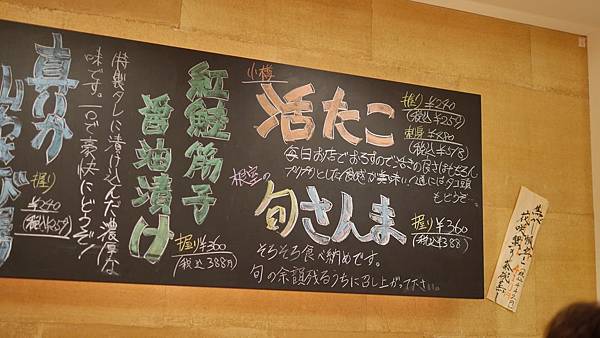 小樽
活たこ
握り ¥240
(税込¥259)
刺身 ¥880
毎日お店でおろすので活きの良さはもちろん
プリプリとした食感が美味い!通にはタコ頭
もどうぞ
根室の
旬さんま
握り ¥360
(税込¥388)
そろそろ食べ納めです。
旬の余韻残るうちに召し上がってください。
紅鮭筋子
醤油漬け
握り¥360
(税込388円)
特製タレに漬け込んだ濃厚な
味です。一口で豪快にどうぞ!
真いか
握り
¥240
(税込¥259)
花咲